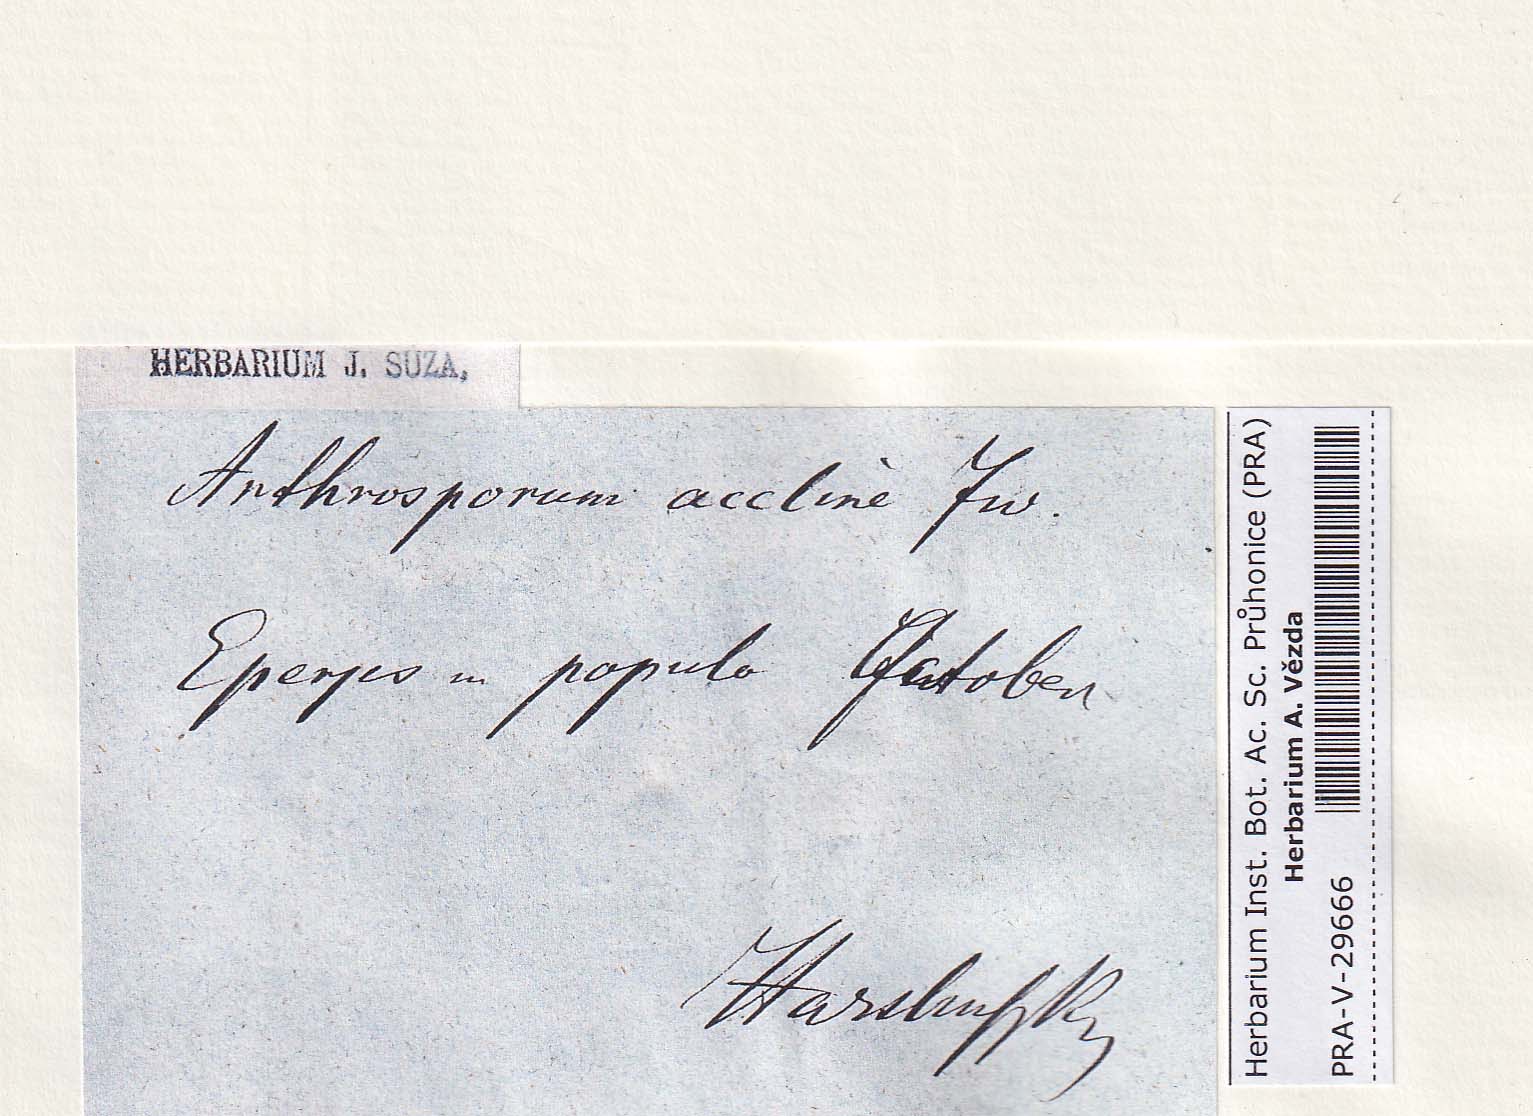 HERBARIUM J. SUZA,
Arthrosporum accline Fw.
Eperjes in populo
Hazslinszky
Herbarium Inst. Bot. Ac. Sc. Průhonice (PRA)
Herbarium A. Vězda
PRA-V-29666